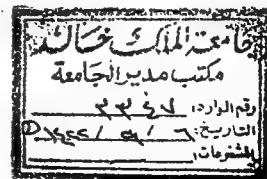 جامعة الملك خالد
مكتب مدير الجامعة
رقم الوارد: ٣٣٤٧
التاريخ:
المشفوعات: